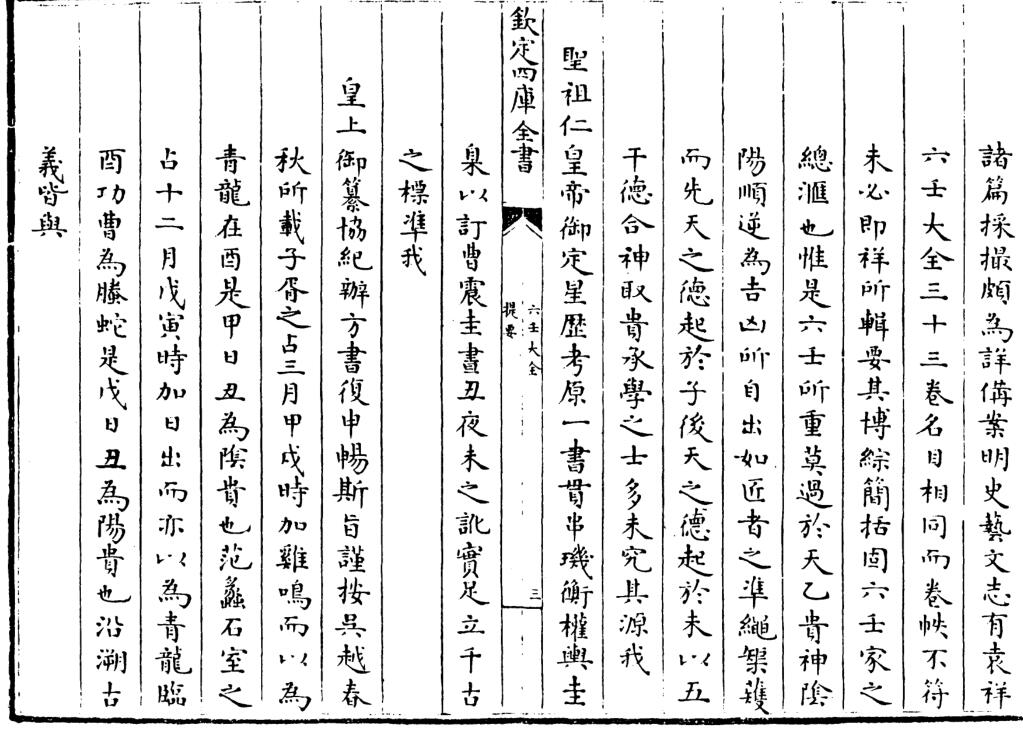 諸篇採撮頗為詳備案明史藝文志有袁祥
六壬大全三十三卷名目相同而卷帙不符
未必即祥所輯要其博綜簡括固六壬家之
總滙也惟是六壬所重莫過於天乙貴神陰
陽順逆為吉凶所自出如匠者之準繩榘矱
而先天之德起於子後天之德起於未以五
干德合神取貴承學之士多未究其源我
聖祖仁皇帝御定星歷考原一書貫串璣衡權輿圭
欽定四庫全書
六壬大全
提要
三
臬以訂曹震圭晝丑夜未之訛實足立千古
之標準我
皇上御纂協紀辦方書復申暢斯旨謹按吳越春
秋所載子胥之占三月甲戌時加雞鳴而以為
青龍在酉是甲日丑為陰貴也范蠡石室之
占十二月戊寅時加日出而亦以為青龍臨
酉功曹為螣蛇是戊日丑為陽貴也沿溯古
義皆與